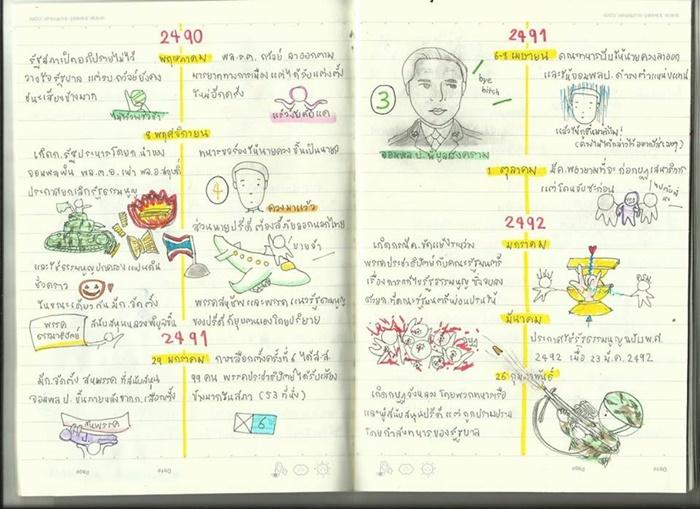 2490
รัฐสภาเปิดอภิปรายไม่ไว้
วางใจรัฐบาล
ชนะเสียงข้างมาก
พฤษภาคม
พล.ร.ต. ถวัลย์ ลาออกตาม
มารยาททางการเมือง แต่ได้รับแต่งตั้ง
ใหม่อีกครั้ง
8 พฤศจิกายน
เกิดรัฐประหารโดย
จอมพล ป.
ประกาศยกเลิกรัฐธรรมนูญ
ทหารขอร้องให้นายควง ขึ้นเป็นนายก
4
ควงมาแว้ว
ส่วนนายปรีดี ต้องลี้ภัยออกนอกไทย
บายจ้า
และใช้รัฐธรรมนูญปกครองแผ่นดิน
ชั่วคราว
ในขณะเดียวกัน มีการจัดตั้ง
พรรค
ประชาธิปัตย์
สนับสนุนหลวงพิบูลขึ้น
พรรคสหชีพ และพรรคแนวรัฐธรรมนูญ
ของปรีดี ก็ยุบตนเองโดยปริยาย
2491
29 มกราคม
การเลือกตั้งครั้งที่ 6 ได้ ส.ส.
99 คน พรรคประชาธิปัตย์ได้รับเสียง
ข้างมากในสภา (53 ที่นั่ง)
มีการจัดตั้ง สหพรรค ที่สนับสนุน
จอมพล ป. ขึ้นภายหลังจากการเลือกตั้ง
สหพรรค
ป.
6
2491
6-8 เมษายน
คณะทหารบีบให้นายควงลาออก
และเชิญจอมพล ป. ดำรงตำแหน่งแทน
3
bye
bitch
จอมพล ป. พิบูลสงคราม
1 ตุลาคม
มีความพยายามที่จะก่อกบฏเสนาธิการ
แต่โดนจับซะก่อน
2492
มกราคม
เกิดกรณีความขัดแย้งระหว่าง
พรรคประชาธิปัตย์กับคณะรัฐมนตรี
เรื่องการแก้ไขรัฐธรรมนูญ
มีนาคม
ประกาศใช้รัฐธรรมนูญฉบับ พ.ศ.
2492 เมื่อ 23 มี.ค. 2492
26 กุมภาพันธ์
เกิดกบฏวังหลวง โดยพวกทหารเรือ
และผู้สนับสนุนปรีดี แต่ถูกปราบปราม
โดยกำลังทหารของรัฐบาล
Date
Page
Date
Page